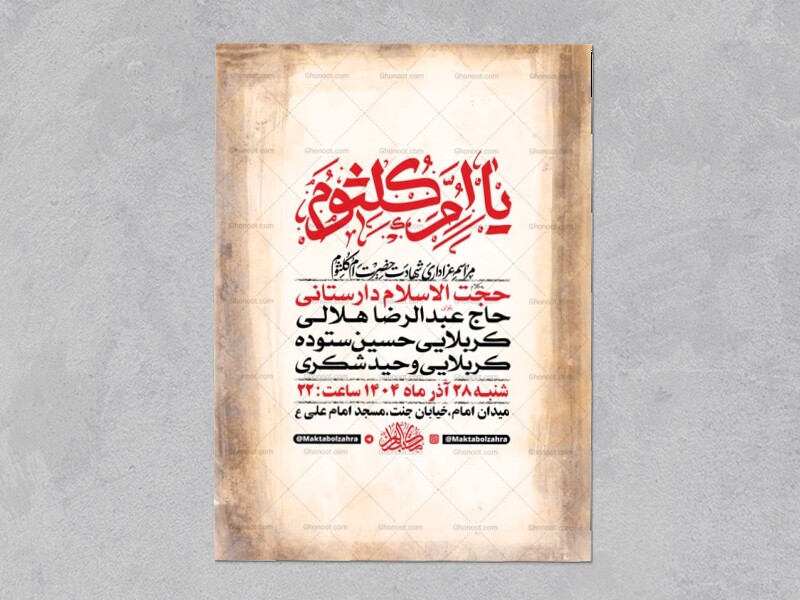 یا اُمِّ کُلثوُم
مراسم عزاداری شهادت حضرت ام کلثوم
حجت الاسلام دارستانی
حاج عبدالرضا هلالی
کربلایی حسین ستوده
کربلایی وحید شکری
شنبه ۲۸ آذر ماه ۱۴۰۴ ساعت: ۲۲
میدان امام، خیابان جنت، مسجد امام علی ع
@Maktabolzahra @Maktabolzahra
Ghonoot.com